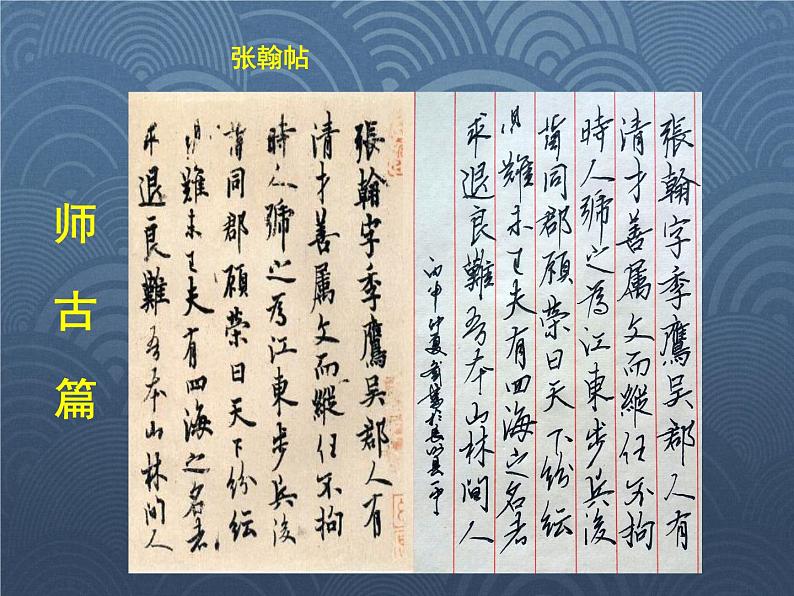 张翰帖
师
古
篇
張翰字季鷹吳郡人有
清才善属文而縱任不拘
時人號之為江東步兵後
謂同郡顧榮曰天下紛紜
難未已夫有四海之名者
求退良難吾本山林間人
張翰字季鷹吳郡人有
清才善属文而縱任不拘
時人號之為江東步兵後
謂同郡顧榮曰天下紛紜
難未已夫有四海之名者
求退良難吾本山林間人
丙申仲夏